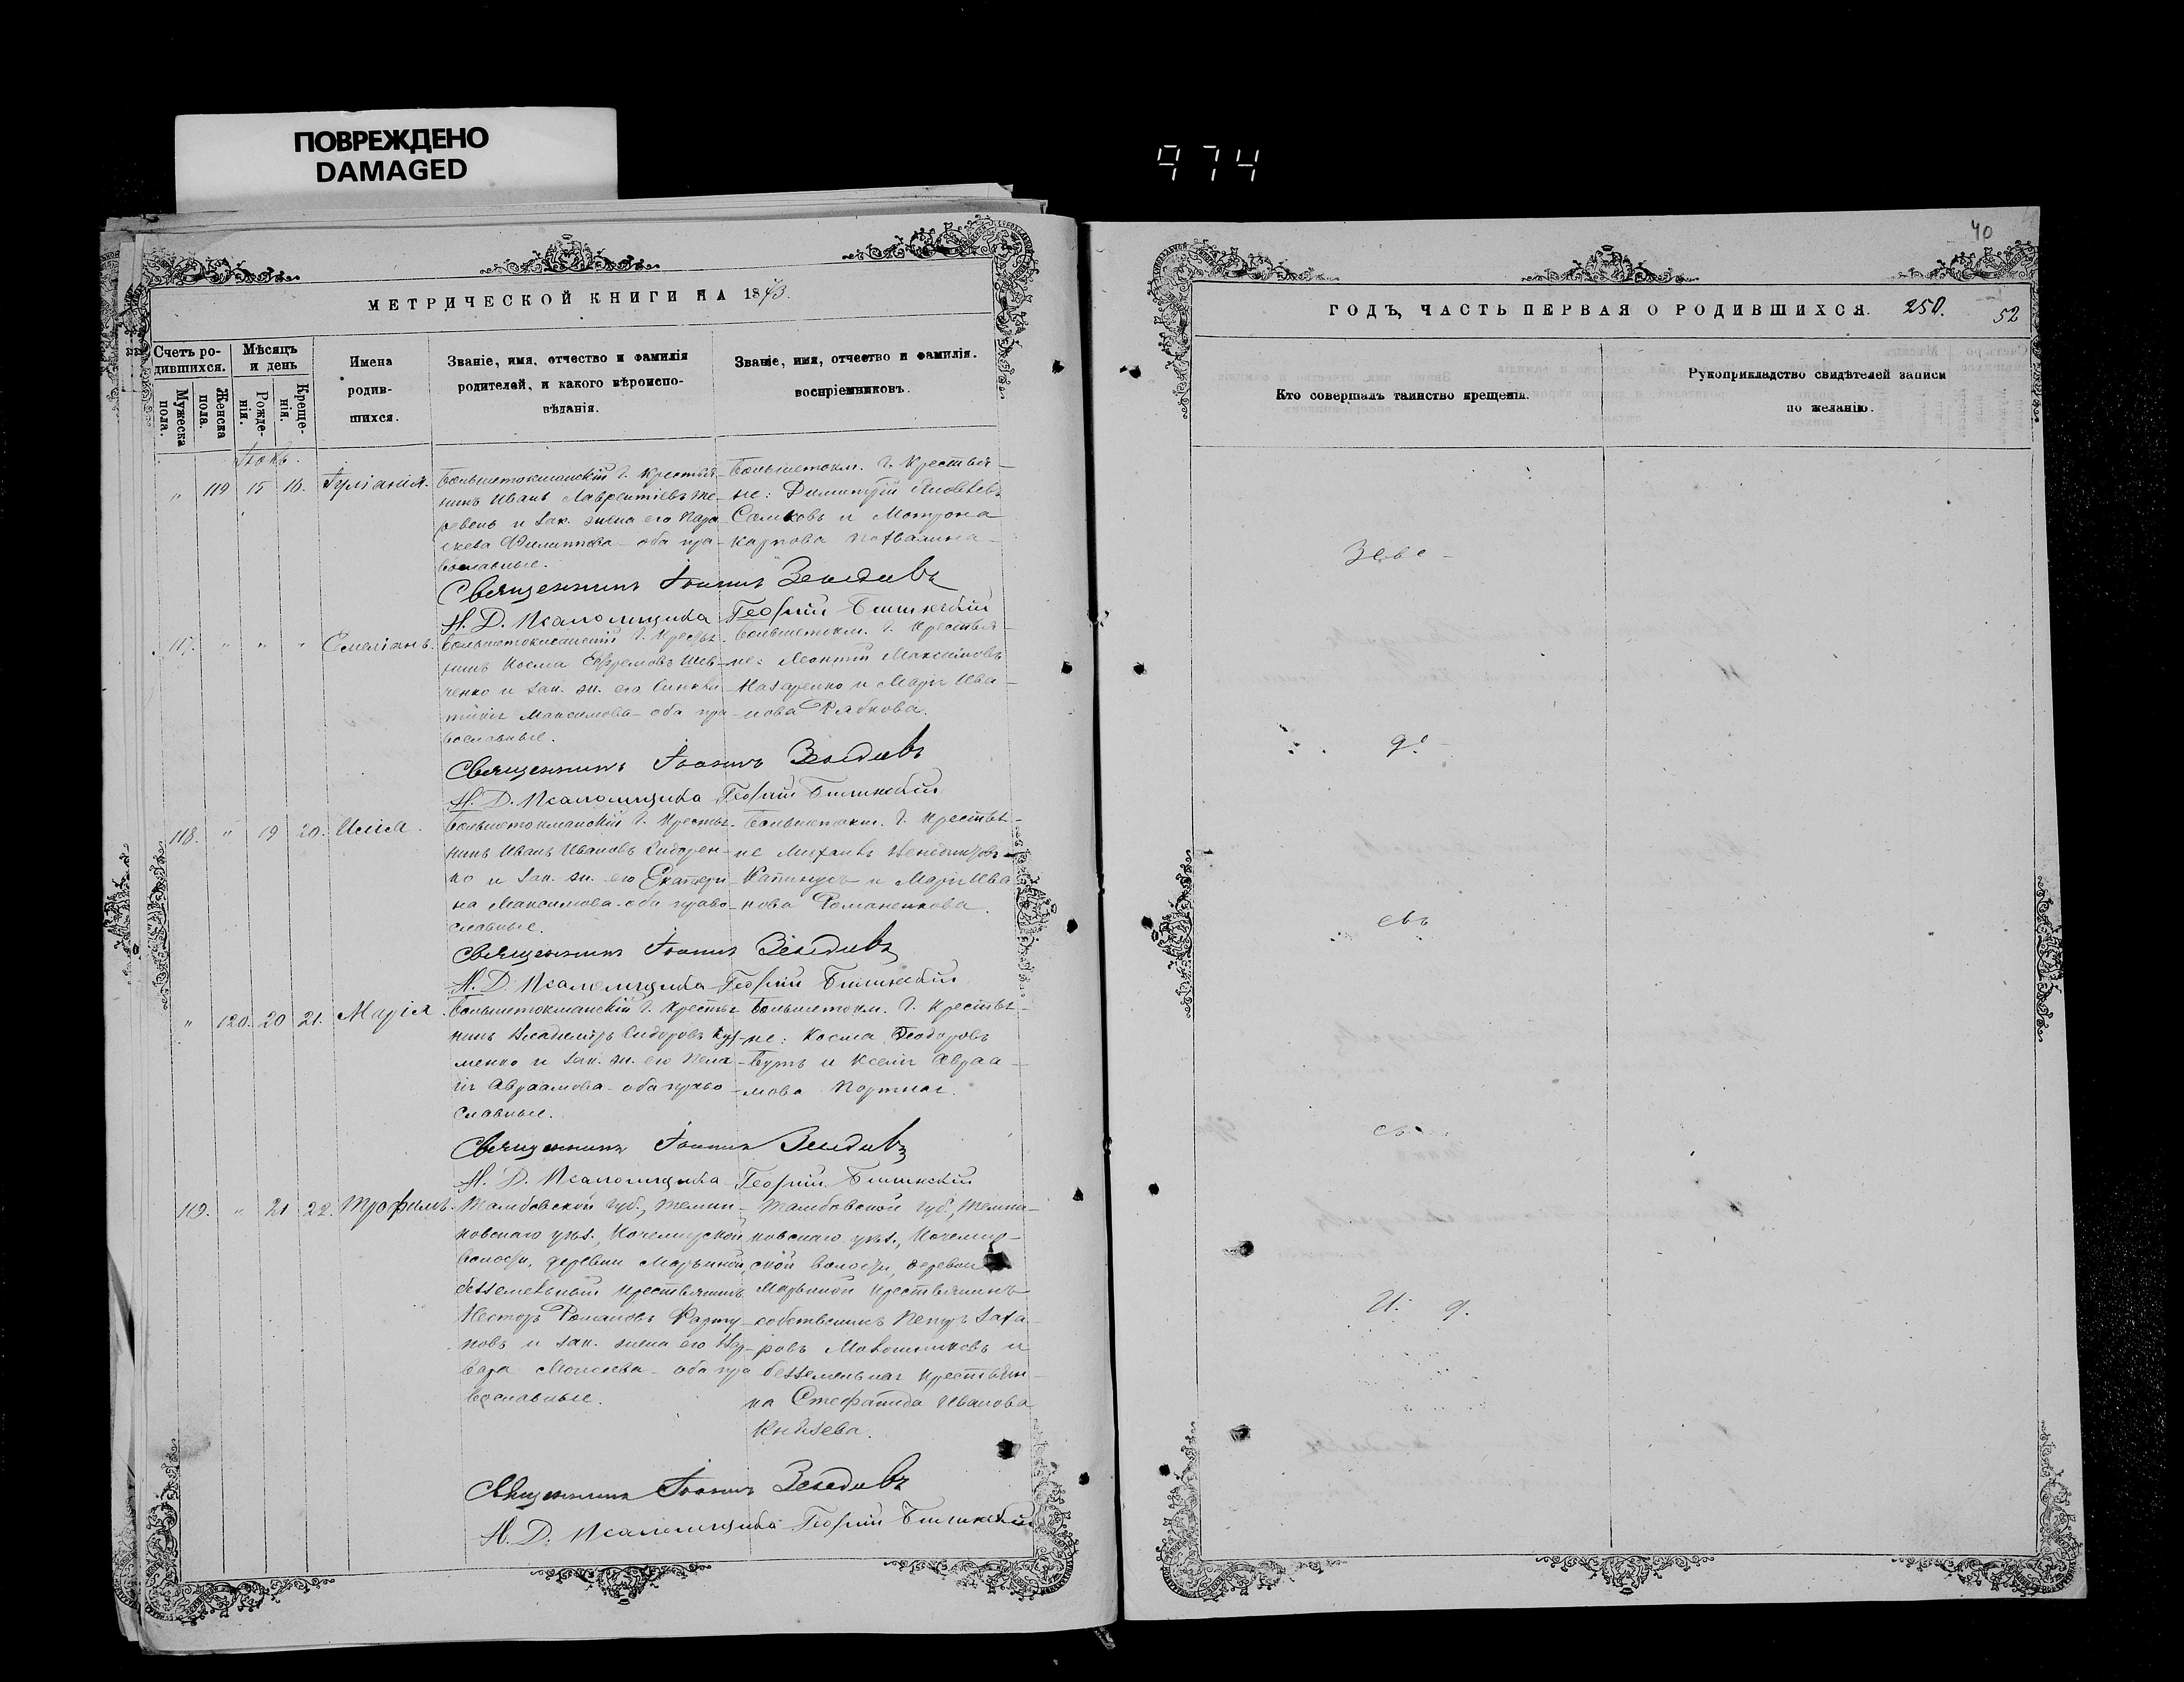 ПОВРЕЖДЕНО
DAMAGED
974
40
МЕТРИЧЕСКОЙ КНИГИ НА 1873.
Счетъ ро-
дившихся.
Мужеска
пола.
Женска
пола.
Мѣсяцъ
и день
Рожде-
нія.
Креще-
нія.
Имена
родив-
шихся.
Званіе, имя, отчество и фамилія
родителей, и какого вѣроиспо-
вѣданія.
Званіе, имя, отчество и фамилія.
воспріемниковъ.
" 119 15 16. Іуліанія.
Большетокмакскій Г. Крестья-
нинъ Иванъ Лаврентіевъ
и зак. жена его Пара-
скева Филиппова - оба пра-
вославные.
Большетокм. Г. Крестья-
не: Димитрій Яковлевъ
и Мотрона
Карпова
Священникъ Іоаннъ
И. Д. Псаломщика Георгій
117. " " " Емеліанъ.
Большетокмакскій Г. Крестья-
нинъ Косма Ефремовъ Шев-
ченко и зак. ж. его Синкли-
тикія Максимова - оба пра-
вославные.
Большетокм. Г. Крестья-
не: Леонтій Максимовъ
Назаренко и Марія Ива-
нова Рябкова.
Священникъ Іоаннъ
И. Д. Псаломщика Георгій
118. " 19 20. Илія.
Большетокмакскій Г. Крестья-
нинъ Иванъ Ивановъ Сидорен-
ко и зак. ж. его Екатери-
на Максимова - оба право-
славные.
Большетокм. Г. Крестья-
не Михаилъ
и Марія Ива-
нова Романенкова.
Священникъ Іоаннъ
И. Д. Псаломщика Георгій
" 120. 20 21. Марія.
Большетокмакскій Г. Крестья-
нинъ Владиміръ Сидоровъ Куз-
менко и зак. ж. его Пела-
гія Авраамова - оба право-
славные.
Большетокм. Г. Крестья-
не: Косма Ѳеодоровъ
и Ксенія Авраа-
мова Портная.
Священникъ Іоаннъ
И. Д. Псаломщика Георгій
119. " 21 22. Трофимъ.
Тамбовской губ., Темни-
ковскаго уѣз., Кочемирской
волости, деревни Марьиной,
безземельный крестьянинъ
Несторъ Романовъ
и зак. жена его Вар-
вара Моисеева - оба пра-
вославные.
Тамбовской губ., Темни-
ковскаго уѣз., Кочемир-
ской волости, деревни
Марьиной крестьянинъ
собственникъ Петръ Заха-
ровъ и
безземельная крестьян-
ка Стефанида Иванова
Князева.
Священникъ Іоаннъ
И. Д. Псаломщика Георгій
ГОДЪ, ЧАСТЬ ПЕРВАЯ О РОДИВШИХСЯ. 250.
52
Кто совершалъ таинство крещенія.
Рукоприкладство свидѣтелей записи
по желанію.